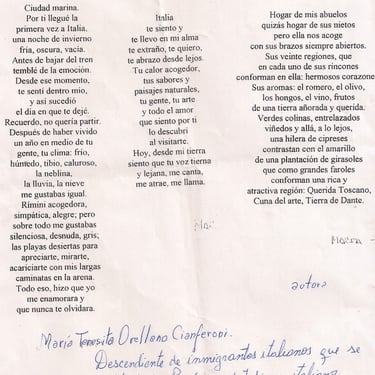 Ciudad marina.
Por ti llegué la
primera vez a Italia,
una noche de invierno
fría, oscura, vacía.
Antes de bajar del tren
temblé de la emoción.
Desde ese momento,
te sentí dentro mío,
y así sucedió
el día en que te dejé.
Recuerdo, no quería partir.
Después de haber vivido
un año en medio de tu
gente, tu clima: frío,
húmedo, tibio, caluroso,
la neblina,
la lluvia, la nieve
me gustabas igual.
Rímini acogedora,
simpática, alegre; pero
sobre todo me gustabas
silenciosa, desnuda, gris;
las playas desiertas para
apreciarte, mirarte,
acariciarte con mis largas
caminatas en la arena.
Todo eso, hizo que yo
me enamorara y
que nunca te olvidara.
Italia
te siento y
te llevo en mi alma
te extraño, te quiero,
te abrazo desde lejos.
Tu calor acogedor,
tus sabores y
paisajes naturales,
tu gente, tu arte
y todo el amor
que siento por ti
lo descubrí
al visitarte.
Hoy, desde mi tierra
siento que tu voz tierna
y lejana, me canta,
me atrae, me llama.
Hogar de mis abuelos
quizás hogar de sus nietos
pero ella nos acoge
con sus brazos siempre abiertos.
Sus veinte regiones, que
en cada uno de sus rincones
conforman en ella: hermosos corazone
Sus aromas: el romero, el olivo,
los hongos, el vino, frutos
de una tierra añorada y querida.
Verdes colinas, entrelazados
viñedos y allá, a lo lejos,
una hilera de cipreses
contrastan con el amarillo
de una plantación de girasoles
que como grandes faroles
conforman una rica y
atractiva región: Querida Toscano,
Cuna del arte, Tierra de Dante.
autora
María Teresita Orellano Cianferoni.
Descendiente de inmigrantes italianos que se